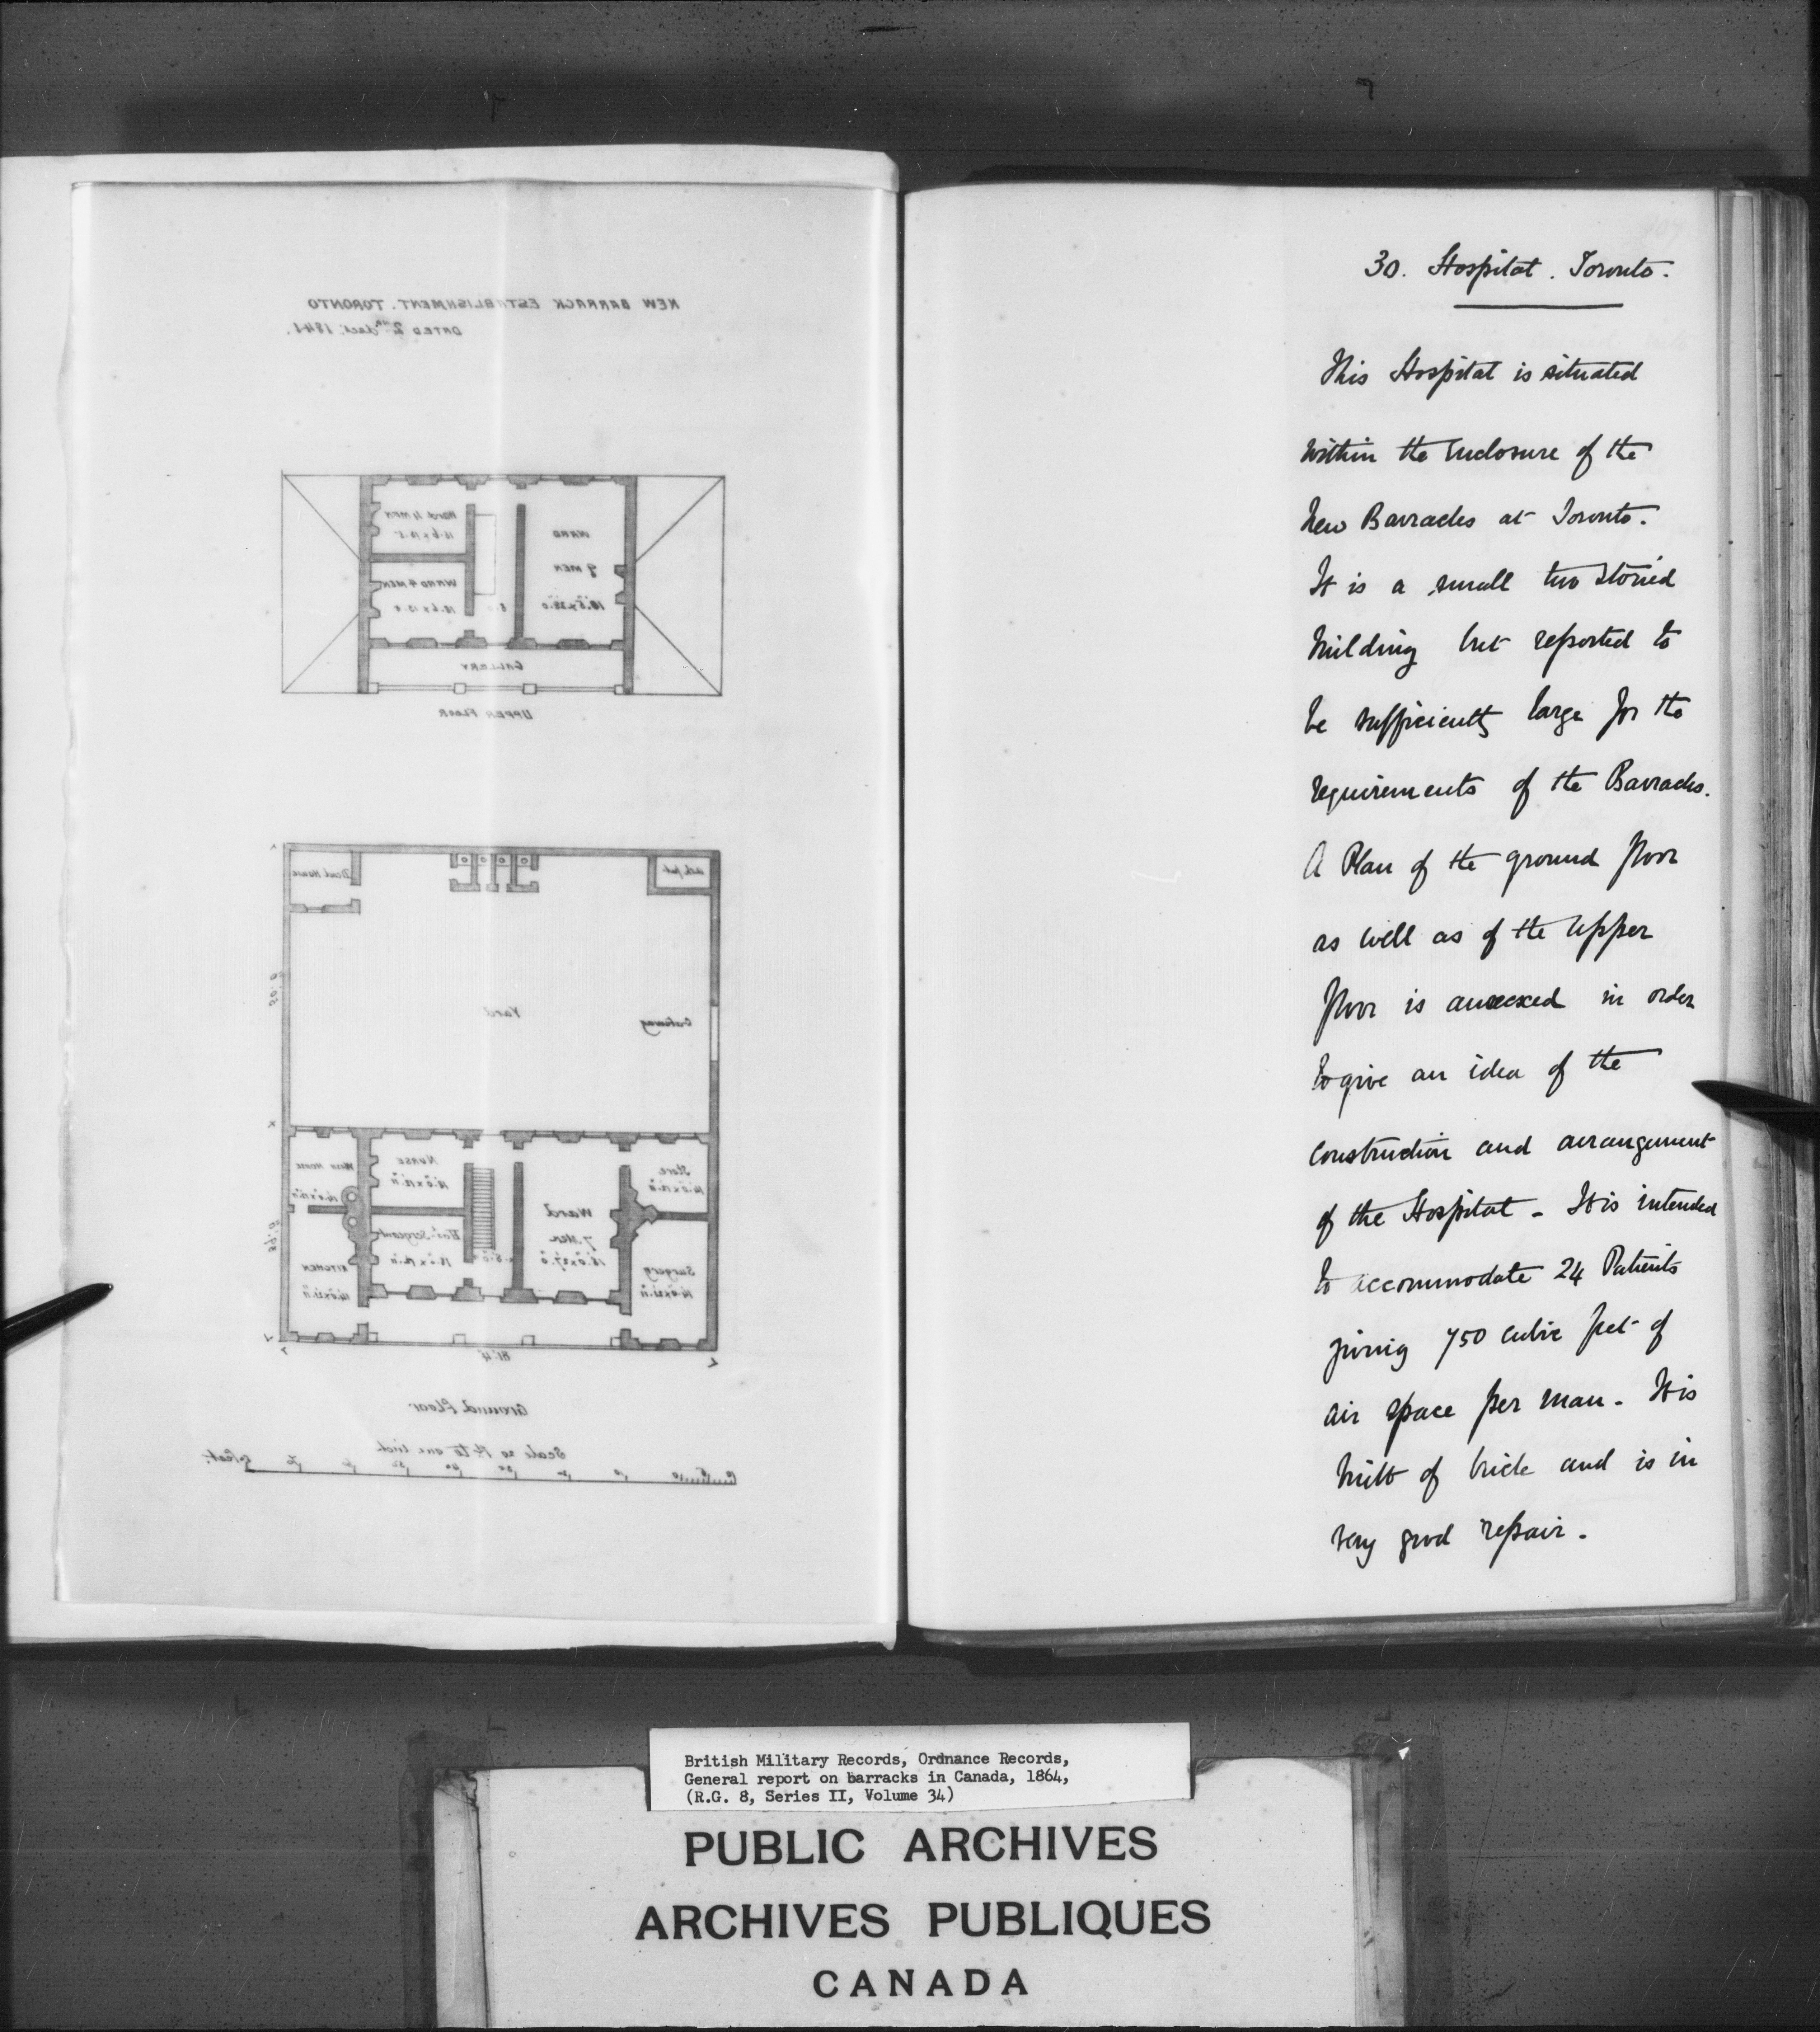 NEW BARRACK ESTABLISHMENT. TORONTO
DATED 2nd Sept. 1841.
Ward 4 men
WARD
9 MEN
WARD 4 MEN
GALLERY
UPPER FLOOR
Dead House
Ash pit
Yard
Gateway
Wash House
NURSE
Store
Ward
7 Men
Hosl. Sergeant
KITCHEN
Surgery
81.4
Ground Floor
Scale 20 Ft. to one Inch
30. Hospital. Toronto.
This Hospital is situated
within the Enclosure of the
New Barracks at Toronto.
It is a small two storied
building but reported to
be sufficiently large for the
requirements of the Barracks.
A Plan of the ground floor
as well as of the Upper
floor is annexed in order
to give an idea of the
construction and arrangement
of the Hospital - It is intended
to accommodate 24 Patients
giving 750 cubic feet of
air space per man - It is
built of brick and is in
very good repair -
British Military Records, Ordnance Records,
General report on barracks in Canada, 1864,
(R.G. 8, Series II, Volume 34)
PUBLIC ARCHIVES
ARCHIVES PUBLIQUES
CANADA